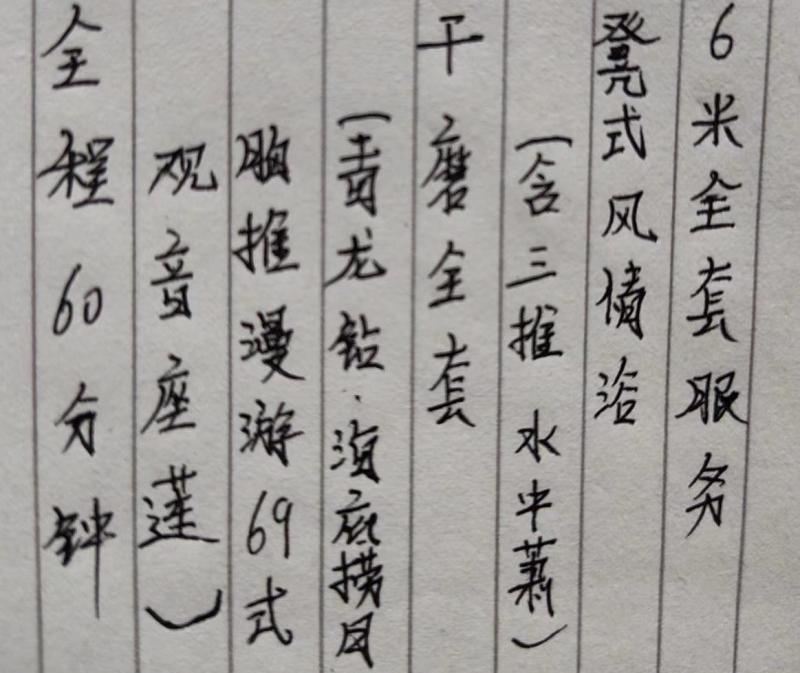 6米全套服务
凳式风情浴
(含三推 水中萧)
干磨全套
(青龙钻.海底捞月
胸推漫游69式
观音座莲)
全程60分钟